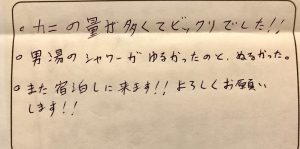 。カニの量が多くてビックリでした!!
。男湯のシャワーがゆるかったのと、ぬるかった。
。また宿泊しに来ます!! よろしくお願い
します!!